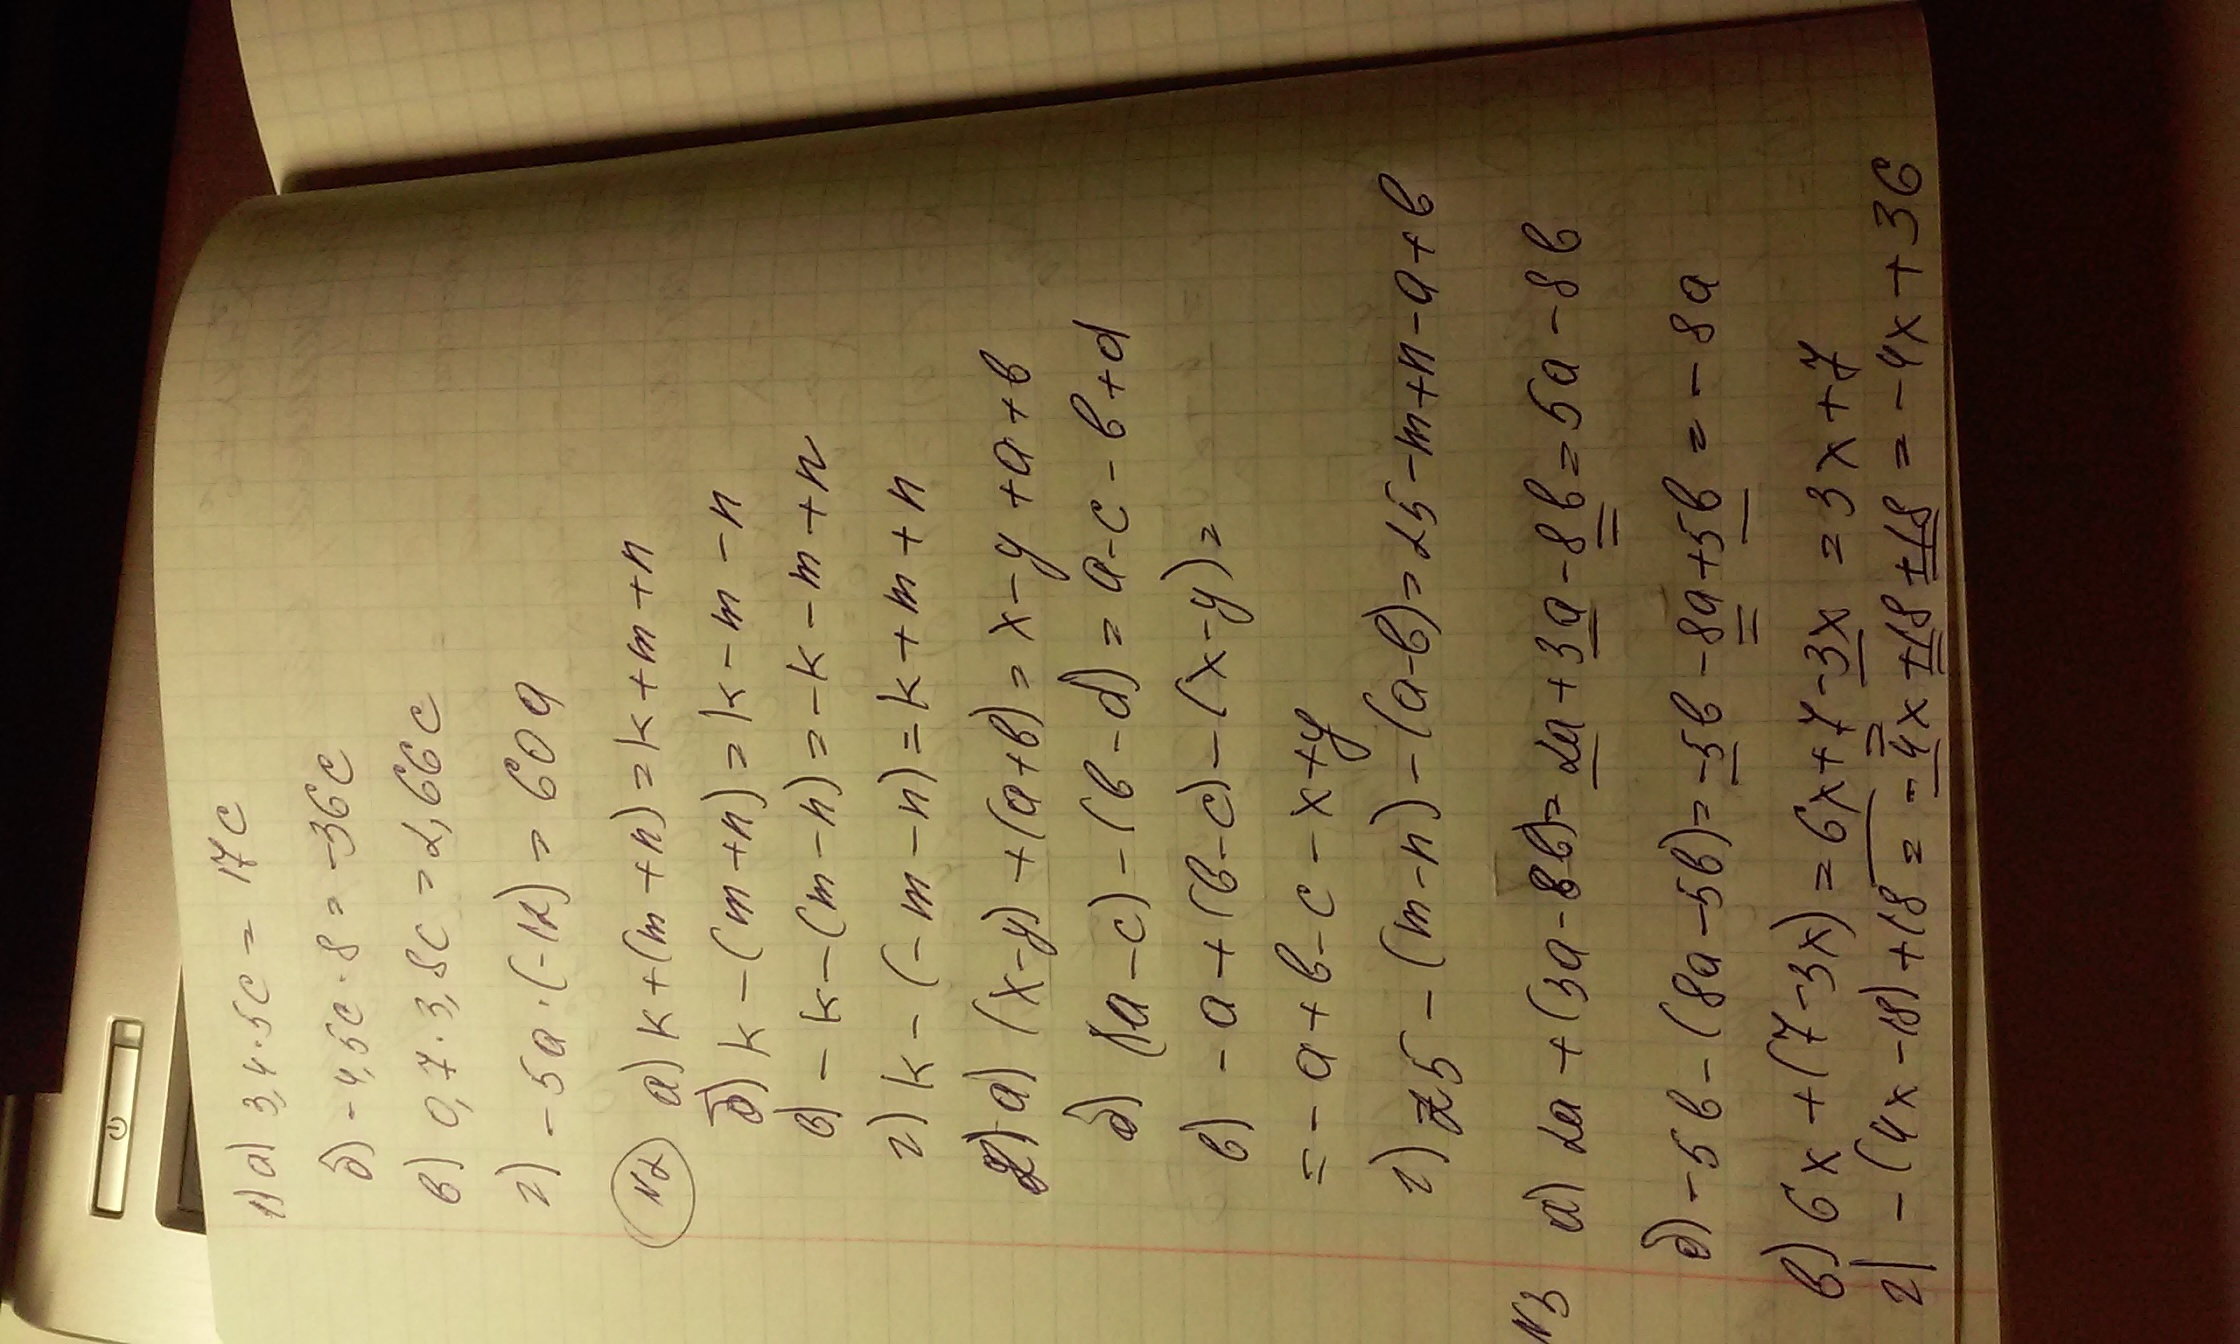 1) а) 3,4·5с = 17с
б) -4,5с·8 = -36с
в) 0,7·3,8с = 2,66с
г) -5а·(-12) = 60а
N2 а) k+(m+n)=k+m+n
б) k-(m+n)=k-m-n
в) -k-(m-n)=-k-m+n
г) k-(-m-n)=k+m+n
2) а) (x-y)+(a+b)=x-y+a+b
б) (a-c)-(b-d)=a-c-b+d
в) -a+(b-c)-(x-y)=
=-a+b-c-x+y
г) 25-(m-n)-(a-b)=25-m+n-a+b
N3 а) 2a+(3a-8b)=2a+3a-8b=5a-8b
б) -5b-(8a-5b)=-5b-8a+5b=-8a
в) 6x+(7-3x)=6x+7-3x=3x+7
г) -(4x-18)+18=-4x+18+18=-4x+36